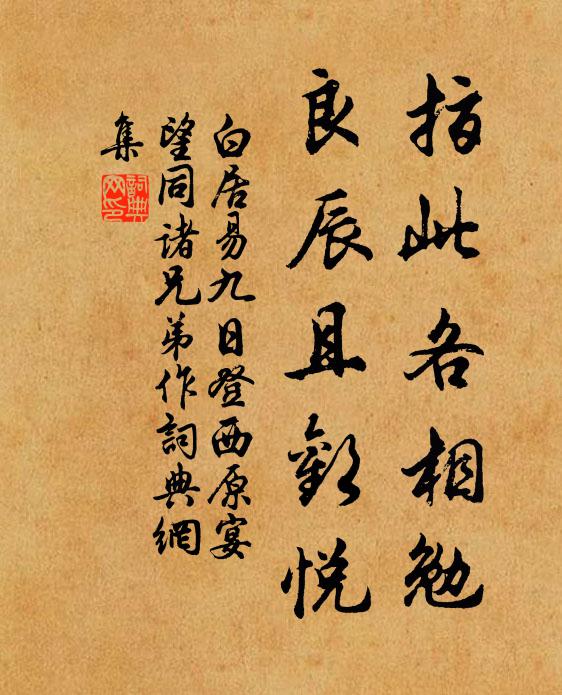 指此各相勉
良辰且歡悅
白居易九日登西原宴
望同諸兄弟作詞典網
集
詞典
网印